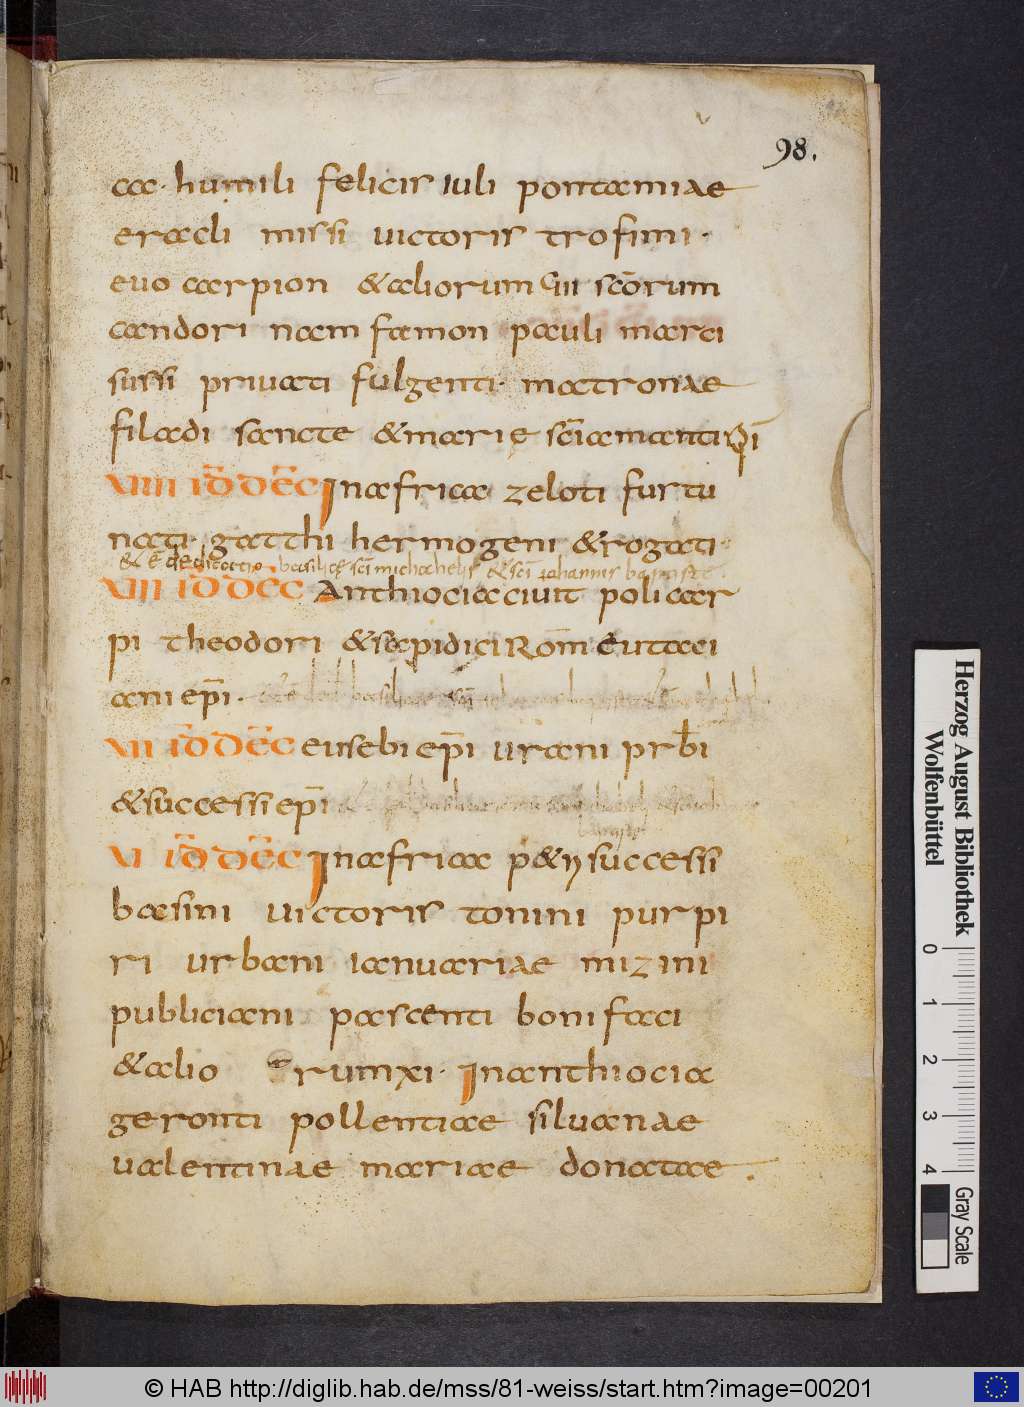 98.
ca· humili felicis iuli pontamiae
eracli missi uictoris trofimi·
euo carpion &aliorum ꞔiii scōrum
candori nam famon pauli marci
sussi priuati fulgenti· matronae
filadi sancte &marię scīamanti
VIIII ID̄ DĒC Inafrica zeloti furtu
nati· gatthi hermogeni &rogati·
& ē dedicatio basilicę scī michahelis &scī iohannis baptistę·
VIII ID̄ DĒC Anthiocia ciuit policar
pi theodori &sapidici Rōm eutaci
ani ep̄i·
VII ID̄ DĒC eusebi ep̄i urani prƀi
&successi ep̄i
VI ID̄ DĒC Inafrica p&ri successi
basini uictoris tonini purpi
ri urbani ianuariae mizini
publiciani pascenti bonifaci
&alio rum xi· Inanthiocia
geronti pollentiae siluanae
ualentinae mariae donatae·
Herzog August Bibliothek
Wolfenbüttel
0 1 2 3 4
Gray Scale
© HAB http://diglib.hab.de/mss/81-weiss/start.htm?image=00201